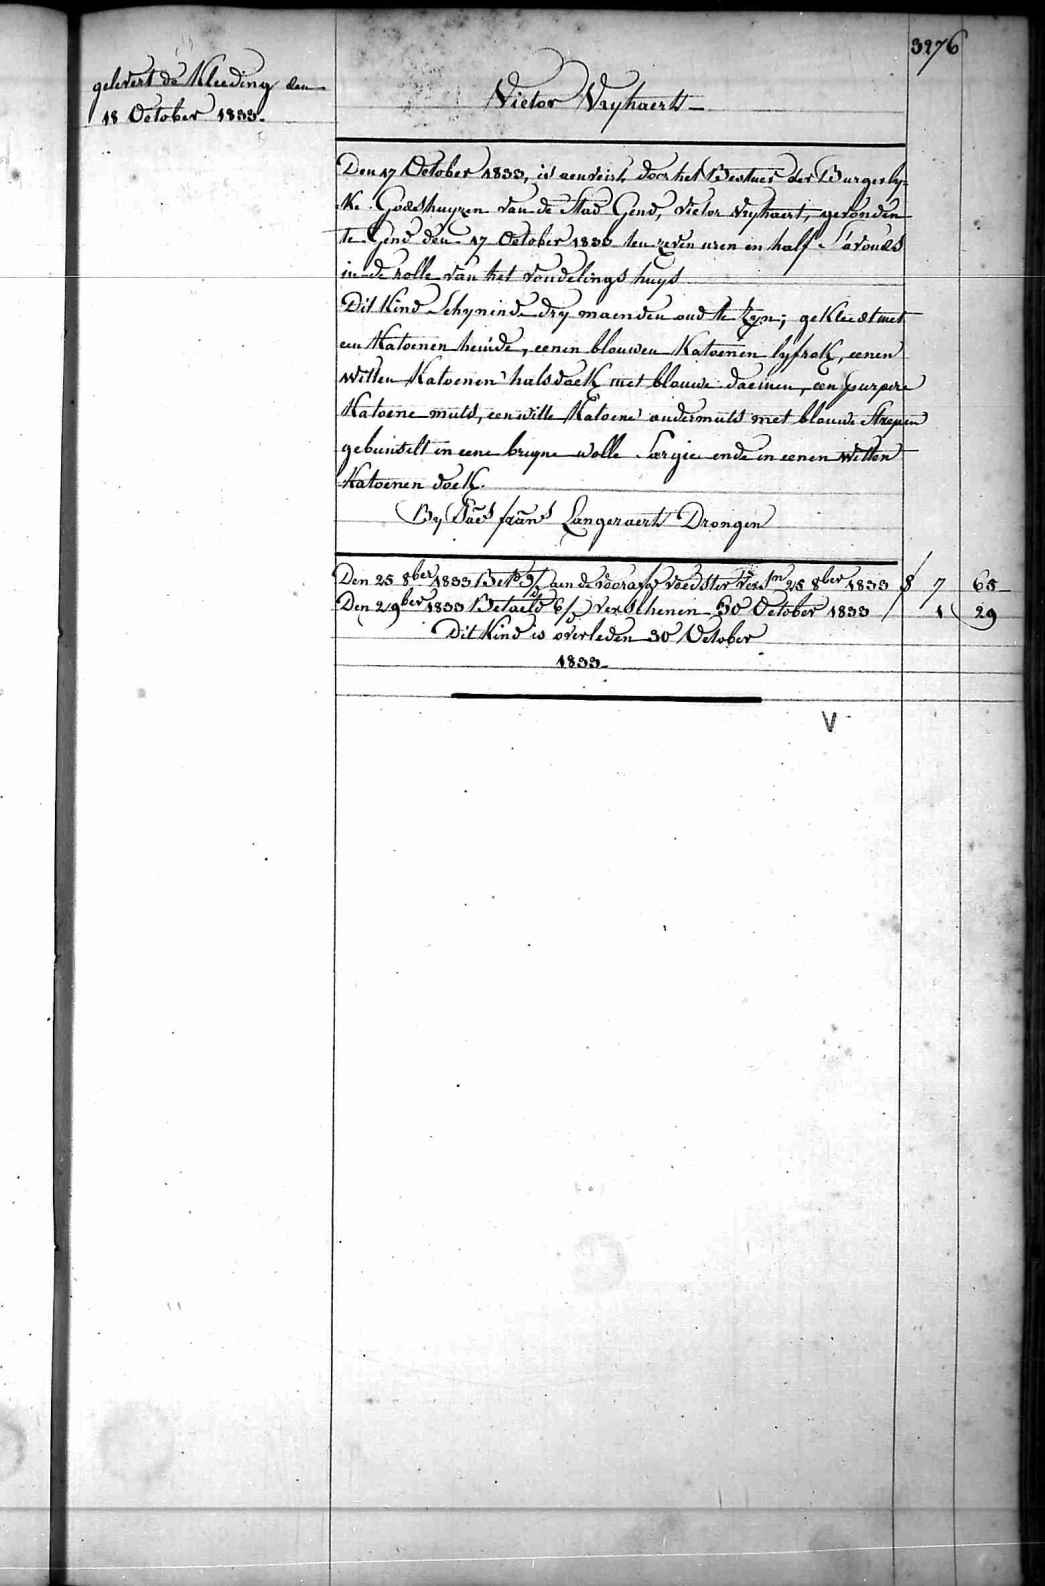 3276
gelevert de Kleeding den
18 October 1833.
Victor Vryhaert
Den 17 October 1833, is aenveirt door het Bestuer der Burgerly-
ke Godshuyzen van de Stad Gend, Victor Vryhaert, gevonden
te Gend den 17 October 1833 ten zeven uren en half s'avonds
in de rolle van het vondelings huys
Dit Kind schynende dry maenden oud te zyn; gekleedt met
een Katoenen hemde, eenen blauwen Katoenen lyfrok, eenen
witten Katoenen halsdoek met blauwe, een purpere
Katoene muts, een witte Katoene ondermuts met blauwe Strepen
gebunselt in eene bruyne wolle Sargie ende in eenen witten
Katoenen doek.
By frans Langeraert Drongen
Den 25 8ber 1833 aen de voedster 25 8ber 1833 7 65
Den 2 9ber 1833 Betaeld verschenen 30 October 1833 1 29
Dit Kind is overleden 30 October
1833
V